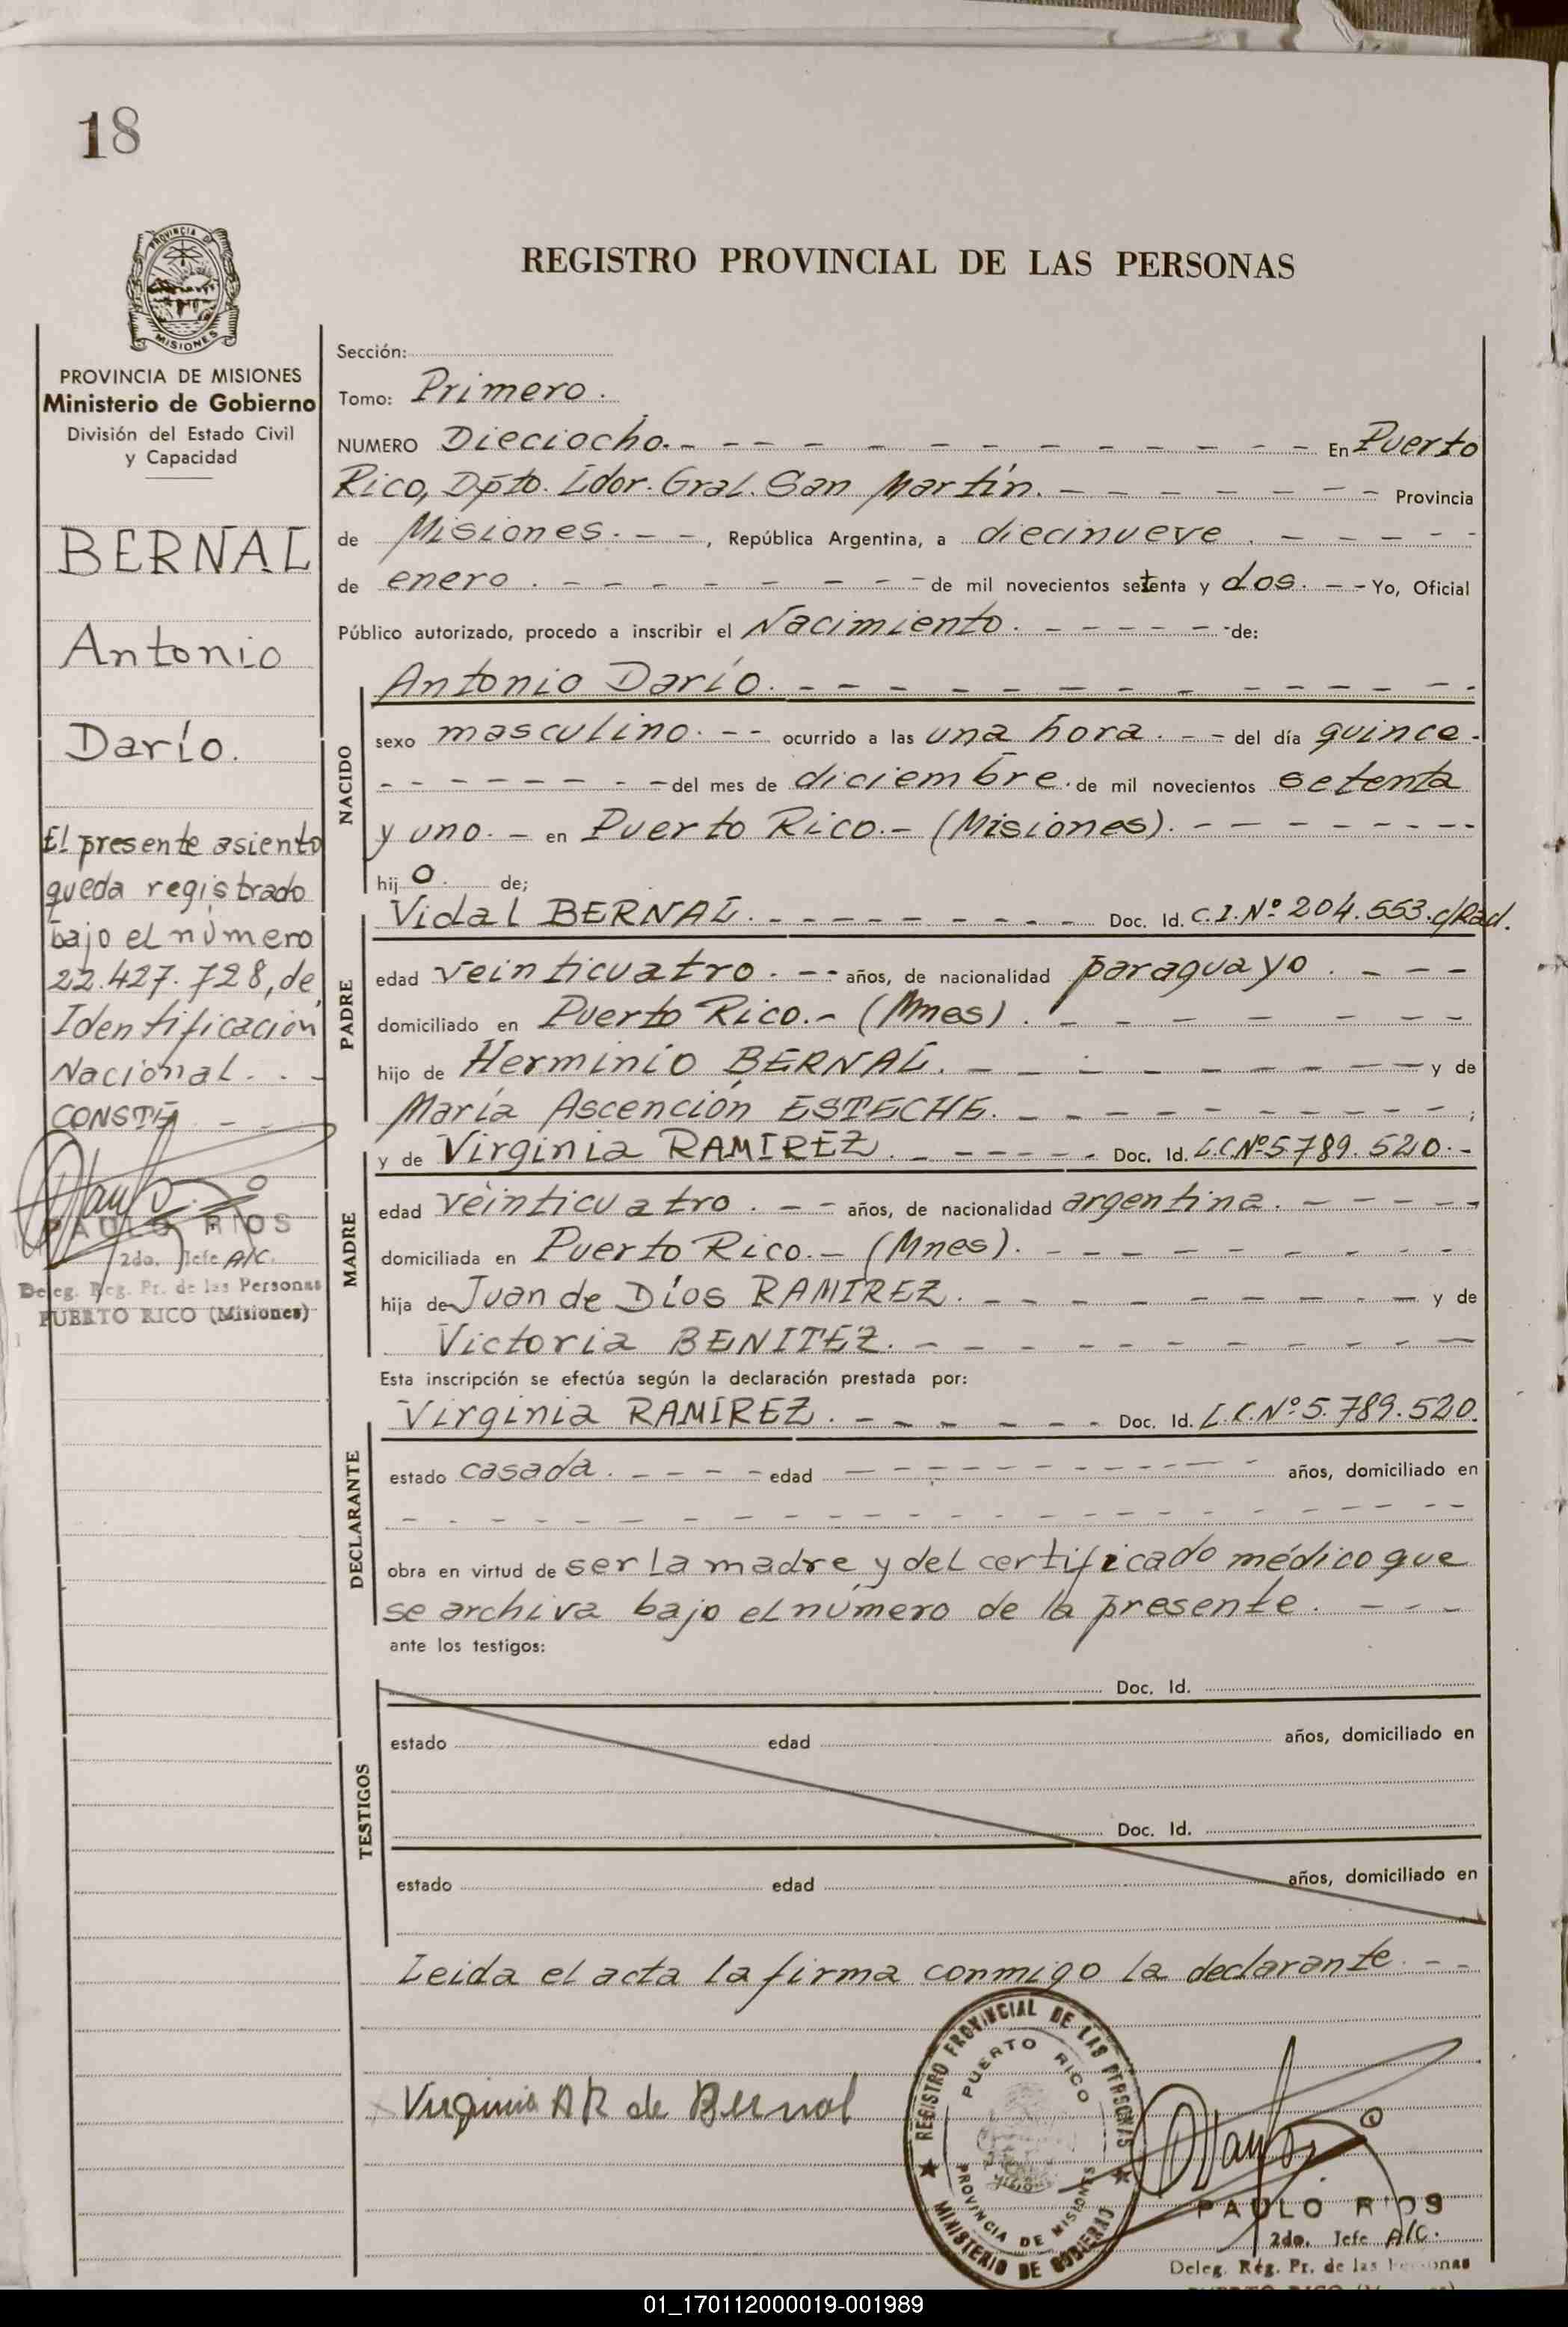 18
PROVINCIA DE
MISIONES
REGISTRO PROVINCIAL DE LAS PERSONAS
PROVINCIA DE MISIONES
Ministerio de Gobierno
División del Estado Civil
y Capacidad
BERNAL
Antonio
Darío.
El presente asiento
queda registrado
bajo el número
22.427.728, de
Identificación
Nacional. . -
CONSTE - -
PAULO RIOS
2do. Jefe A/C.
Deleg. Reg. Pr. de las Personas
PUERTO RICO (Misiones)
Sección:
Tomo: Primero.
NUMERO Dieciocho. - - - En Puerto
Rico, Dpto. Ldor. Gral. San Martín. - - - Provincia
de Misiones. - - , República Argentina, a diecinueve. - - -
de enero. - - - de mil novecientos setenta y dos. - - Yo, Oficial
Público autorizado, procedo a inscribir el Nacimiento. - - - de:
NACIDO
Antonio Darío. - - -
sexo masculino. - - ocurrido a las una hora. - - del día quince -
- - - del mes de diciembre. de mil novecientos setenta
y uno. - en Puerto Rico. - (Misiones). - - -
hij o. de;
PADRE
Vidal BERNAL. - - - Doc. Id. C.I.Nº 204.553.c/Rad.
edad veinticuatro. - - años, de nacionalidad paraguayo. - - -
domiciliado en Puerto Rico. - (Mnes). - - -
hijo de Herminio BERNAL. - - - y de
María Ascención ESTECHE. - - - ;
MADRE
y de Virginia RAMIREZ. - - - Doc. Id. L.C.Nº5.789.520. -
edad veinticuatro. - - años, de nacionalidad argentina. - - -
domiciliada en Puerto Rico. - (Mnes). - - -
hija de Juan de Díos RAMIREZ. - - - y de
Victoria BENITEZ. - - -
Esta inscripción se efectúa según la declaración prestada por:
DECLARANTE
Virginia RAMIREZ. - - - Doc. Id. L.C.Nº5.789.520.
estado casada. - - - edad - - - años, domiciliado en
- - -
obra en virtud de ser la madre y del certificado médico que
se archiva bajo el número de la presente. - - -
ante los testigos:
TESTIGOS
Doc. Id.
estado edad años, domiciliado en
Doc. Id.
estado edad años, domiciliado en
Leida el acta la firma conmigo la declarante. - -
Virginia AR de Bernal
REGISTRO PROVINCIAL DE LAS PERSONAS
PUERTO RICO
PROVINCIA DE MISIONES
MINISTERIO DE GOBIERNO
PAULO RIOS
2do. Jefe A/C.
Deleg. Rég. Pr. de las Personas
01_170112000019-001989